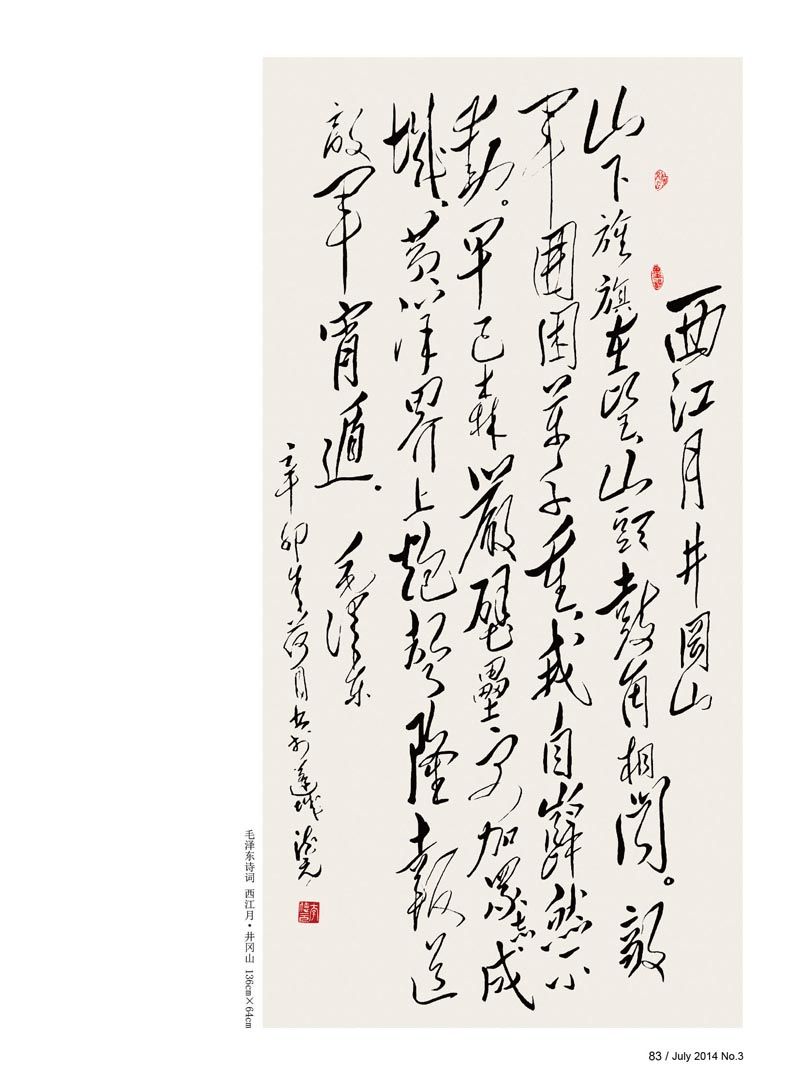 西江月井岡山
山下旌旗在望山頭鼓角相闻。敵
軍圍困萬千重我自巋然不
動。早已森嚴壁壘更加眾志成
城、黄洋界上炮聲隆報道
敵軍宵遁.
毛澤东
辛卯年荷月书於蓬城
毛泽东诗词 西江月·井冈山 136cm×64cm
83 / July 2014 No.3